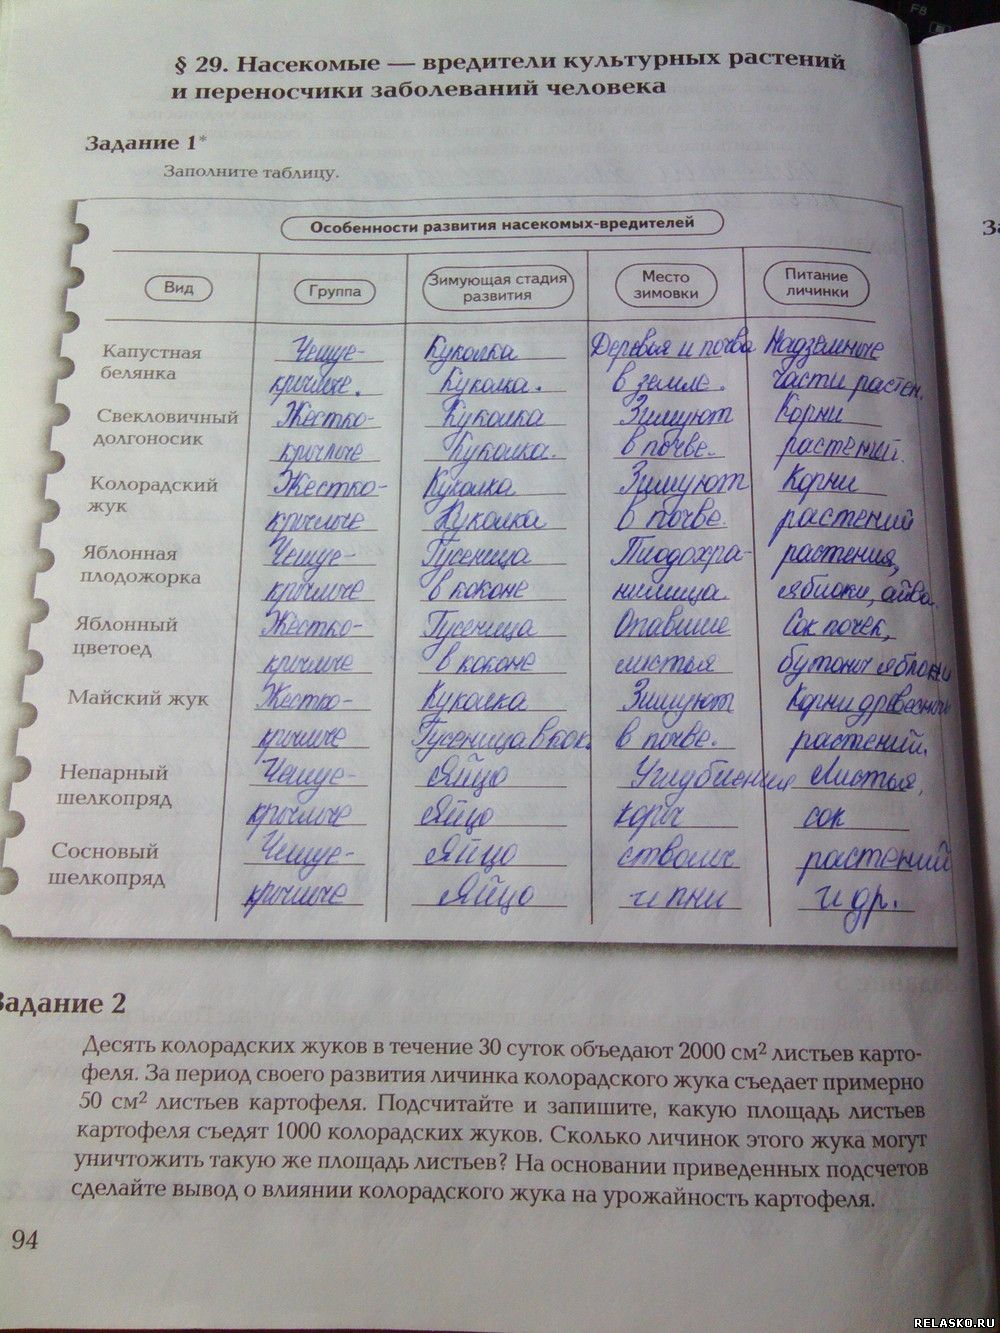 F8
§ 29. Насекомые — вредители культурных растений
и переносчики заболеваний человека
Задание 1*
Заполните таблицу.
Особенности развития насекомых-вредителей
Вид Группа Зимующая стадия развития Место зимовки Питание личинки
Капустная Чешуе- Куколка Деревья и почва Надземные
белянка крылые. Куколка. в земле. части растен.
Свекловичный Жёстко- Куколка Зимуют Корни
долгоносик крылые Куколка. в почве. растений.
Колорадский Жёстко- Куколка Зимуют Корни
жук крылые Куколка в почве. растений
Яблонная Чешуе- Гусеница Плодохра- растения,
плодожорка крылые в коконе нилища. яблоки, айва.
Яблонный Жёстко- Гусеница Опавшие Сок почек,
цветоед крылые в коконе листья бутоны яблони
Майский жук Жёстко- Куколка Зимуют Корни древесных
крылые Гусеница в кок. в почве. растений.
Непарный Чешуе- Яйцо Углубления Листья,
шелкопряд крылые Яйцо коры сок
Сосновый Чешуе- Яйцо стволы растений
шелкопряд крылые Яйцо и пни и др.
Задание 2
Десять колорадских жуков в течение 30 суток объедают 2000 см² листьев карто-
феля. За период своего развития личинка колорадского жука съедает примерно
50 см² листьев картофеля. Подсчитайте и запишите, какую площадь листьев
картофеля съедят 1000 колорадских жуков. Сколько личинок этого жука могут
уничтожить такую же площадь листьев? На основании приведенных подсчетов
сделайте вывод о влиянии колорадского жука на урожайность картофеля.
94
RELASKO.RU